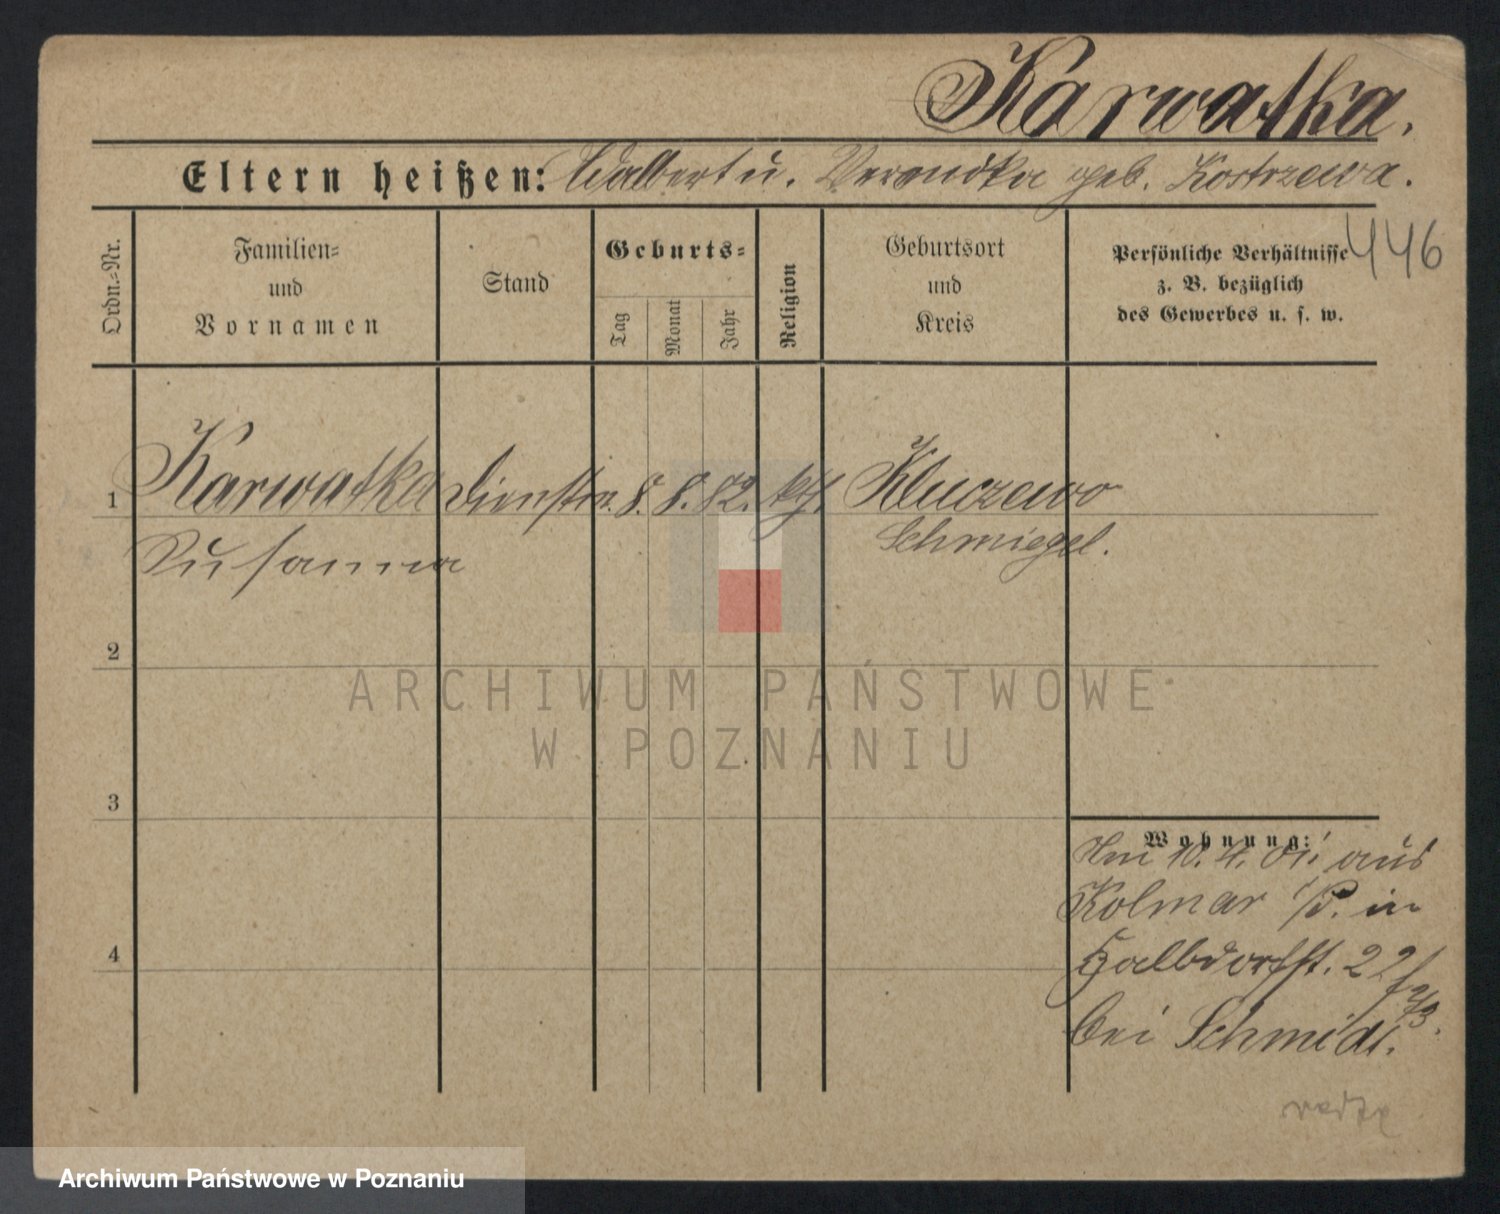 Karwatka.
Eltern heißen: Adalbert u. Veronika geb. Kostrzewa.
446
Ordn.=Nr.
Familien=
und
Vornamen
Stand
Geburts=
Tag
Monat
Jahr
Religion
Geburtsort
und
Kreis
Persönliche Verhältnisse
z. B. bezüglich
des Gewerbes u. s. w.
1 Karwatka Dienstm. 8. 8. 82. kth. Kluczewo
Susanna Schmiegel.
2
ARCHIWUM PAŃSTWOWE
W POZNANIU
3
Wohnung:
Am 10. 4. 01. aus
Kolmar i/P. in
4
Halbdorfstr. 22
bei Schmidt.
Archiwum Państwowe w Poznaniu